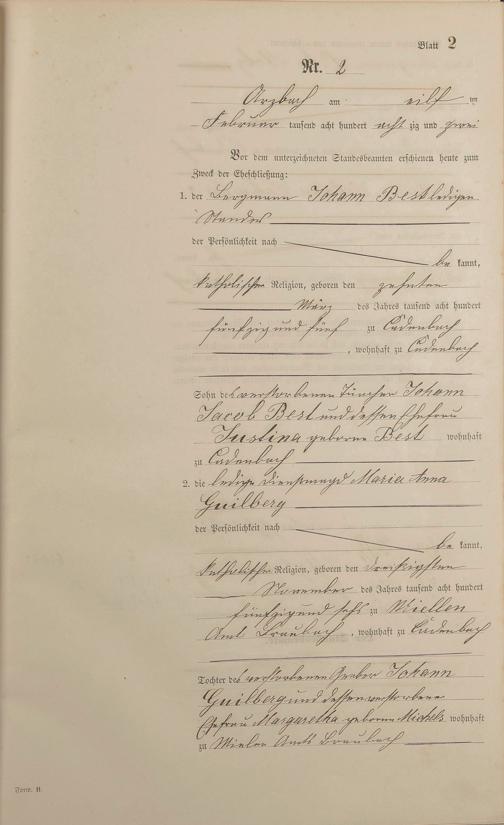 Blatt 2
Nr. 2
Arzbach am eilf ten
Februar tausend acht hundert acht zig und zwei
Vor dem unterzeichneten Standesbeamten erschienen heute zum
Zweck der Eheschließung:
1. der Bergmann Johann Best ledigen
Standes
der Persönlichkeit nach
be kannt,
katholischer Religion, geboren den zehnten
März des Jahres tausend acht hundert
fünfzig und fünf zu Cadenbach
, wohnhaft zu Cadenbach
Sohn des verstorbenen Tüncher Johann
Jacob Best und dessen Ehefrau
Justina geborne Best wohnhaft
zu Cadenbach
2. die ledige Dienstmagd Maria Anna
Guilberg
der Persönlichkeit nach
be kannt,
katholischer Religion, geboren den dreißigsten
November des Jahres tausend acht hundert
fünfzig und sechs zu Miellen
Amt Braubach, wohnhaft zu Cadenbach
Tochter des verstorbenen Johann
Guilberg und dessen verstorbene
Ehefrau Margaretha geborne Michels wohnhaft
zu Mielen Amts Braubach
Form. B.